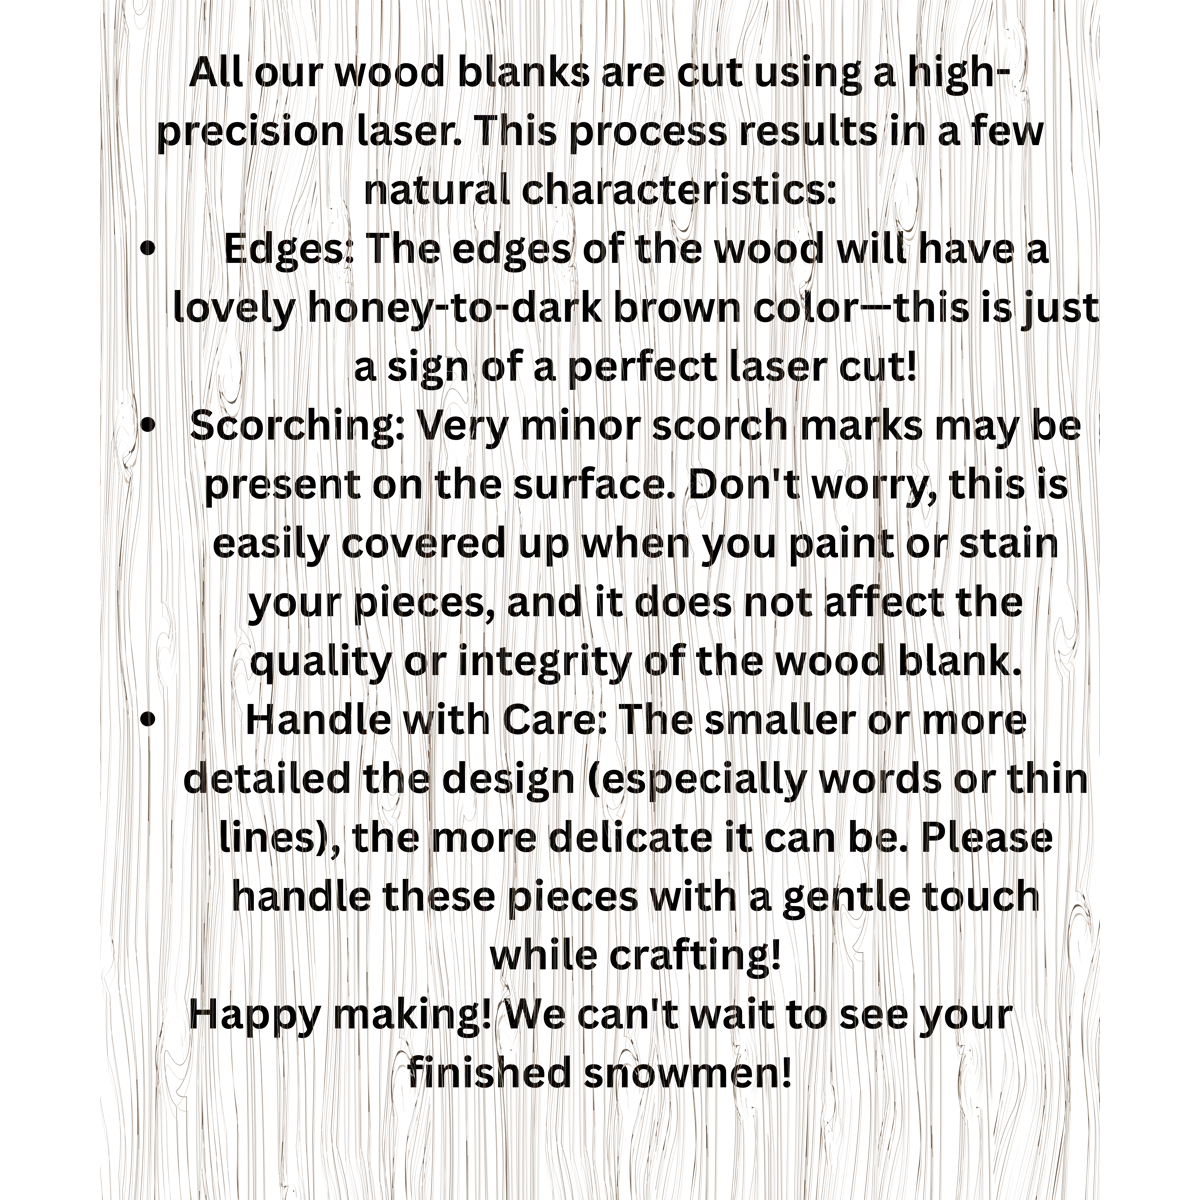 All our wood blanks are cut using a high-
precision laser. This process results in a few
natural characteristics:
• Edges: The edges of the wood will have a
lovely honey-to-dark brown color—this is just
a sign of a perfect laser cut!
• Scorching: Very minor scorch marks may be
present on the surface. Don't worry, this is
easily covered up when you paint or stain
your pieces, and it does not affect the
quality or integrity of the wood blank.
• Handle with Care: The smaller or more
detailed the design (especially words or thin
lines), the more delicate it can be. Please
handle these pieces with a gentle touch
while crafting!
Happy making! We can't wait to see your
finished snowmen!